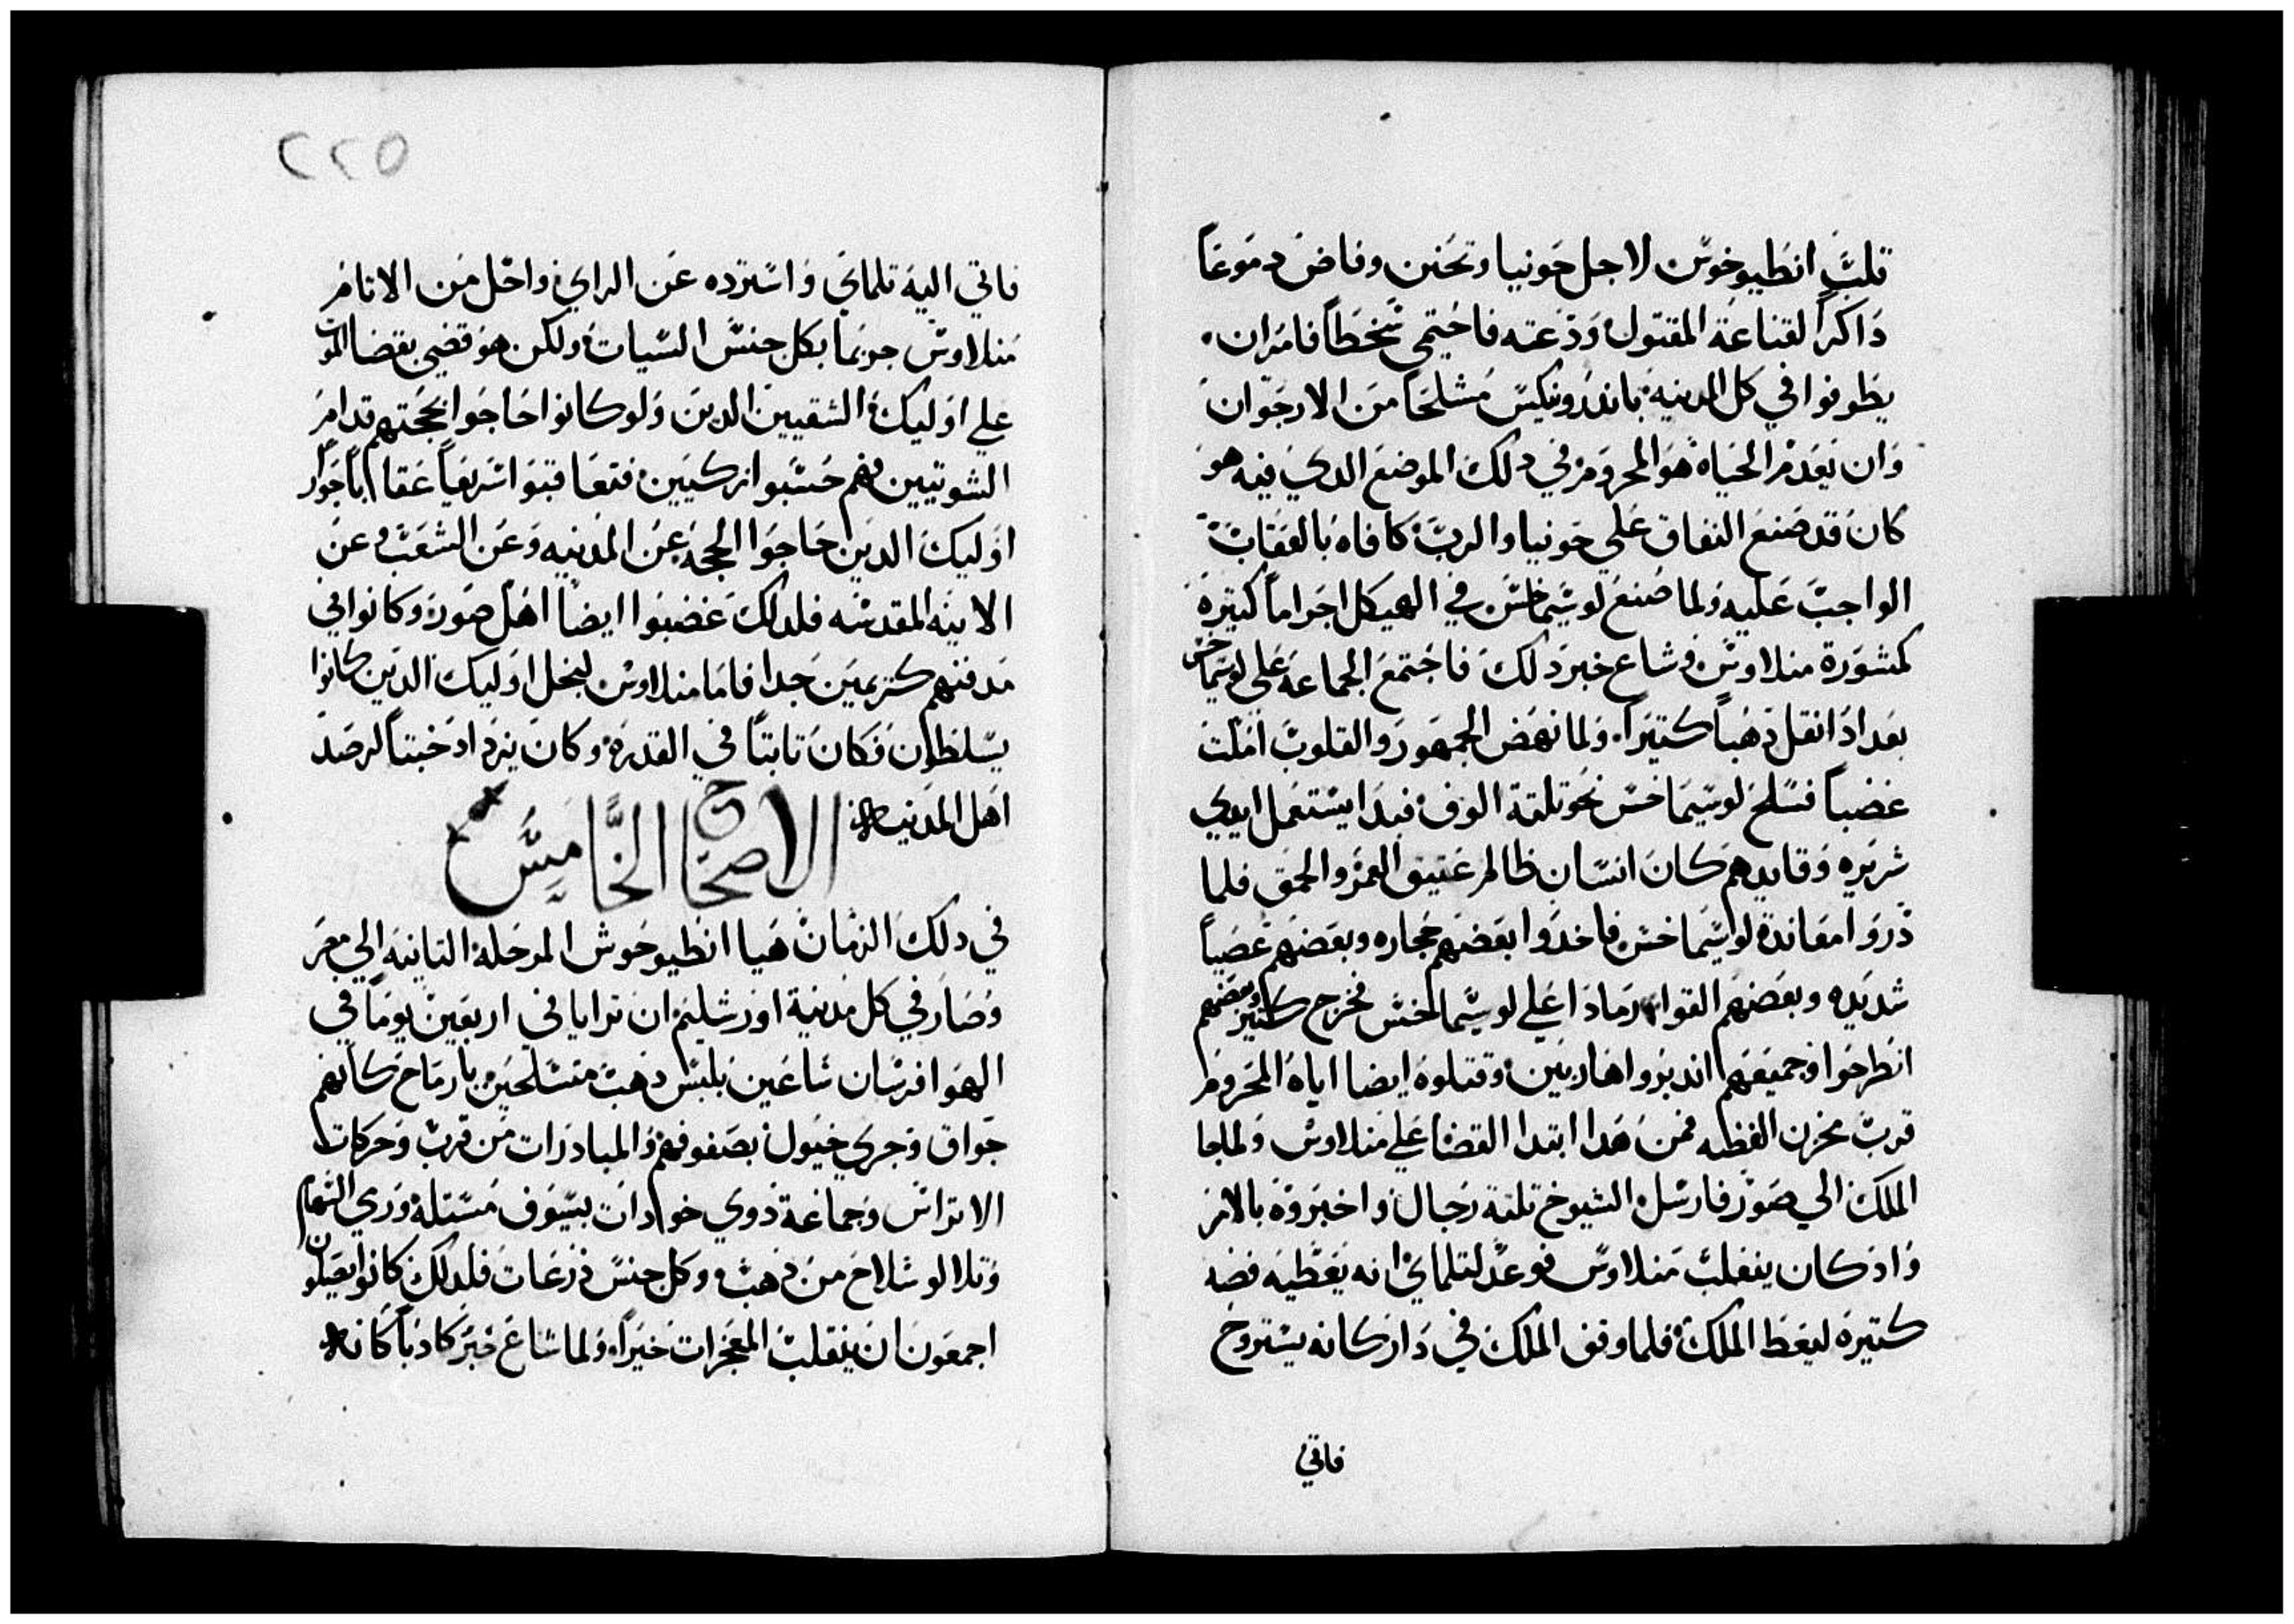 قلبَ انطيوخوس لاجل حونيا وتحنن وفاض دموعاً
ذاكراً لقناعة المقتول ودعته فاحتمي سخطاً فامر ان
يطوفوا في كل المدينه باندرونيكس مشلحاً من الارجوان
وان يعدم الحياه هو المحروم في دلك الموضع الدي فيه هو
كان قد صنع النفاق علي حونيا والرب كافاه بالعقاب
الواجب عليه ولما صنع لوسيماخس في الهيكل اجراماً كتيره
كمشورة منلاوس وشاع خبر دلك فاجتمع الجماعه علي لوسيماخس
بعد اد انقل دهباً كتيراً ولما نهض الجمهور والقلوب امتلت
غضباً فسلح لوسيماخس نحو تلتة الوف فبدا يستعمل ايدي
شريره وقايدهم كان انسان ظالم عتيق العمر والحمق فلما
دروا معاندة لوسيماخس فاخدوا بعضهم حجاره وبعضهم عصياً
شديده وبعضهم القوا رمادا علي لوسيماخس فخرج كتير وبعضهم
انطرحوا وجميعهم اندبروا هاربين وقتلوه ايضا اياه المحروم
قرب مخزن الفظه فمن هدا ابتدا القضا علي منلاوس ولما جا
الملك الي صور فارسل الشيوخ تلتة رجال واخبروه بالامر
واد كان ينغلب منلاوس فوعد لتلماي انه يعطيه فضه
كتيره ليعظ الملك فلما وقف الملك في دار كانه يستروح
فاتي
٢٢٥
فاتي اليه تلماي واسترده عن الراي واحل من الاتام
منلاوس جريما بكل جنس السيات ولكن هو قضي بقضا الموت
علي اوليك الشقيين الدين ولو كانوا حاجوا بحجتهم قدام
الشوتيين فهم حسبوا زكيين فتعاقبوا سريعاً عقاباً جواز
اوليك الدين حاجوا الحجه عن المدينه وعن الشعب وعن
الانيه المقدسه فلدلك غضبوا ايضاً اهل صور وكانوا في
مدفنهم كريمين جدا فاما منلاوس لبخل اوليك الدين كانوا
يسلطون فكان تابتاً في القدره وكان يزداد خبتاً لرصد
اهل المدينه
الاصحاح الخامس
في دلك الزمان هيا انطيوخوس المرحلة التانيه الي مصر
وصار في كل مدينة اورشليم ان ترايا في اربعين يوماً في
الهوا فرسان ساعين بلبس دهب متسلحين بارماح كانهم
جواق وجري خيول بصفوفهم والمبادرات من قرب وحركات
الاتراس وجماعة ذوي خوادات بسيوف مستله ورمي السهام
وتلالو سلاح من دهب وكل جنس درعات فلدلك كانوا يصلون
اجمعون ان ينقلب المعجزات خيراً ولما شاع خبر كادباً كانه